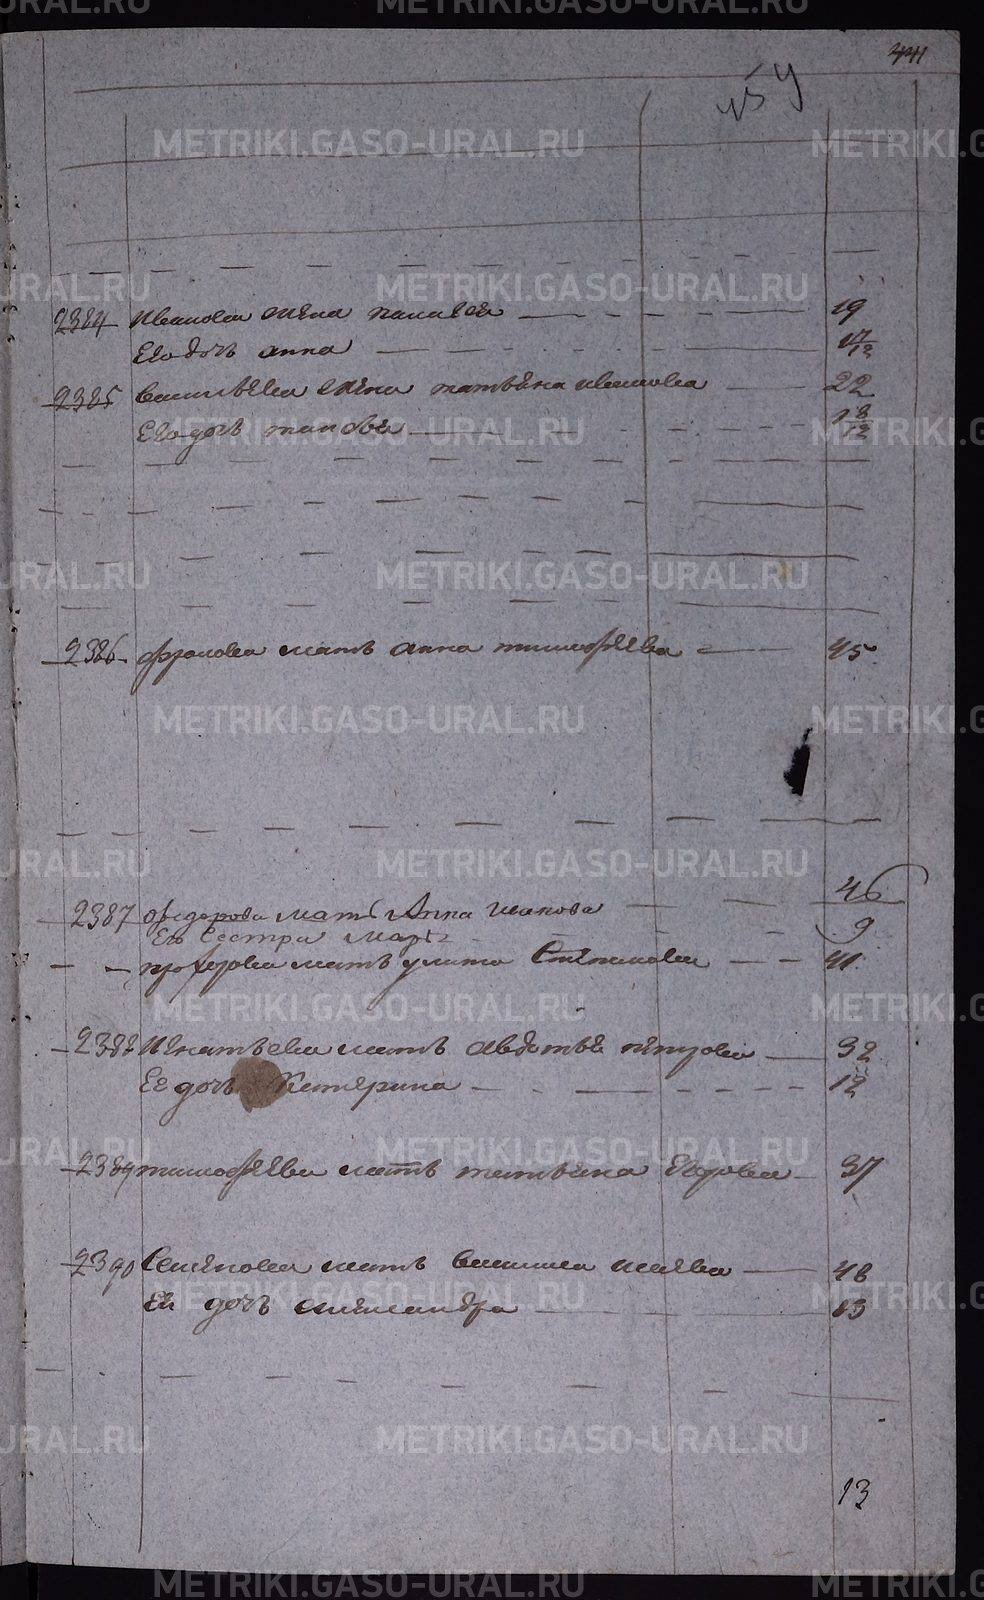 441
2384 Иванова жена палагея 19
Его дочь анна 17/12
2385 васильева жена татьяна иванова 22
Его дочь 1 8/12
2386 фролова мать анна тимофеева 45
46
2387 федорова мать Анна
Его Сестра Марья 9
мать улита Степанова 41
2388 Игнатьева мать авдотья петрова 32
Ее дочь Катерина 12
2389 тимофеева мать татьяна 37
2390 Семенова мать 48
Ея дочь александра 13
13
METRIKI.GASO-URAL.RU